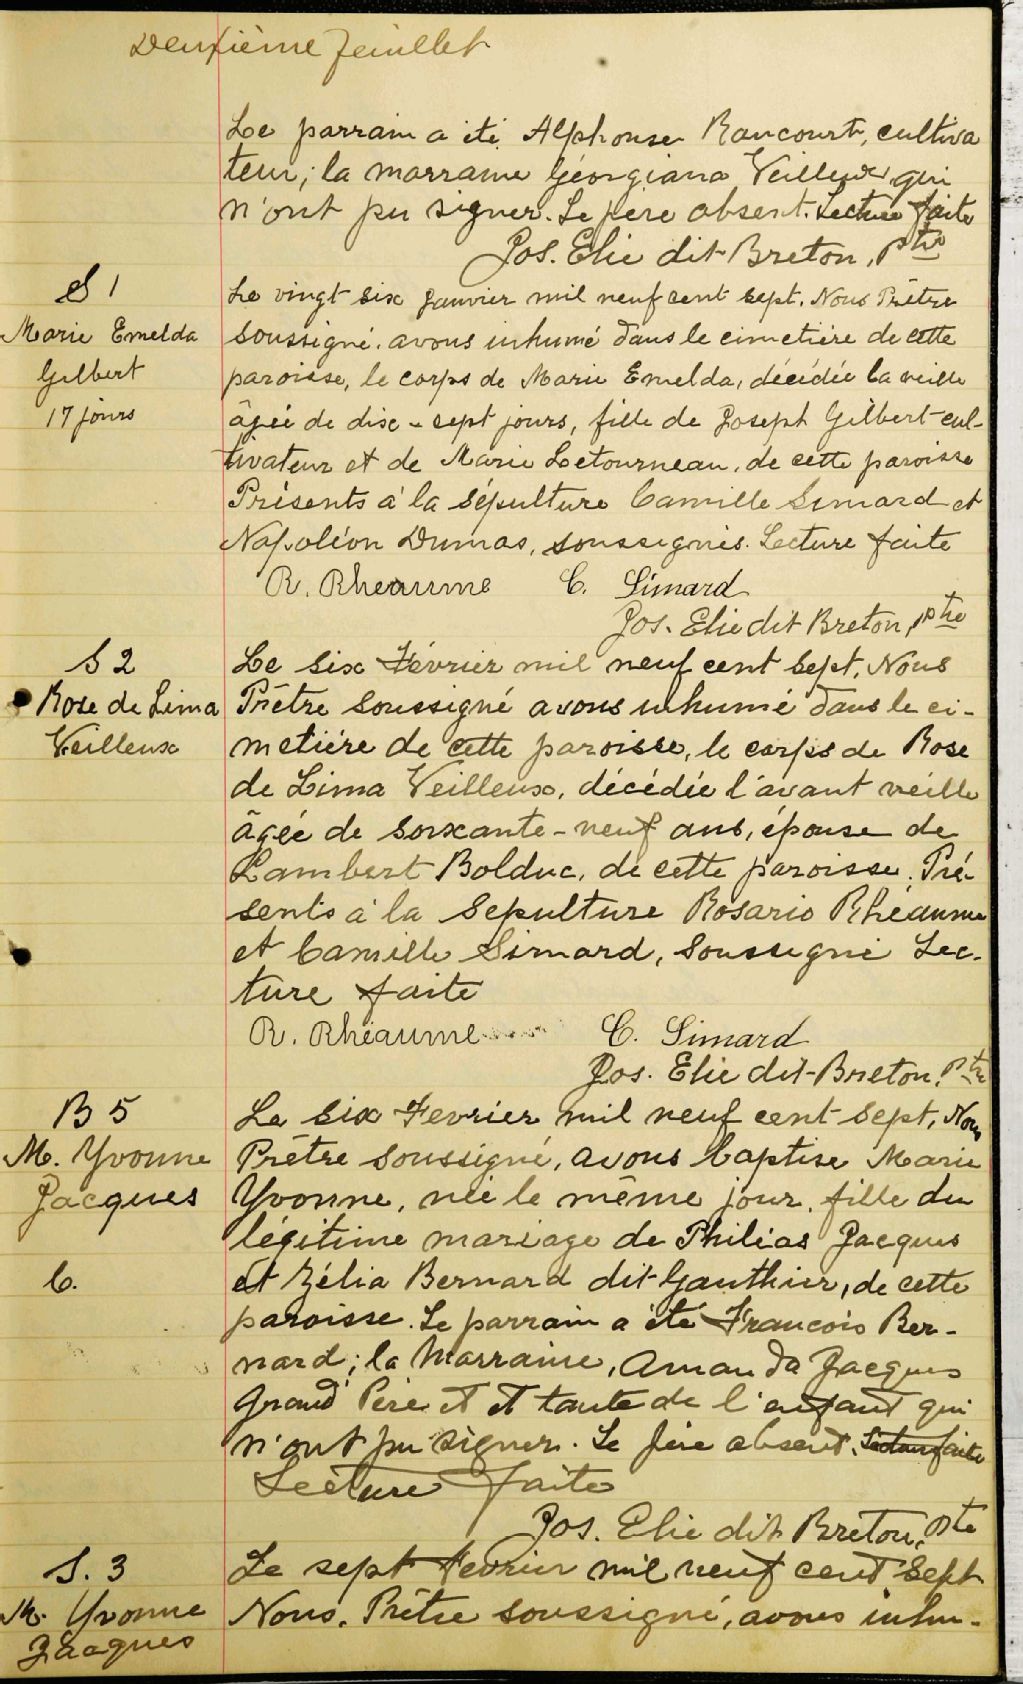 Deuxième feuillet
Le parrain a été Alphonse Rancourt, cultiva
teur; la marraine Géorgiana Veilleux qui
n'ont pu signer. Le père absent. Lecture faite
Jos. Elie dit Breton, Ptre
S 1
Marie Emelda
Gilbert
17 jours
Le vingt six Janvier mil neuf cent sept. Nous Prêtre
soussigné, avons inhumé dans le cimetière de cette
paroisse, le corps de Marie Emelda, décédée la veille
âgée de dix-sept jours, fille de Joseph Gilbert cul-
tivateur et de Marie Letourneau, de cette paroisse
Présents à la sépulture Camille Simard et
Napoléon Dumas, soussignés. Lecture faite
R. Rheaume C. Simard
Jos. Elie dit Breton, Ptre
S 2
Rose de Lima
Veilleux
Le six Février mil neuf cent sept. Nous
Prêtre soussigné avons inhumé dans le ci-
metière de cette paroisse, le corps de Rose
de Lima Veilleux, décédée l'avant veille
âgée de soixante-neuf ans, épouse de
Lambert Bolduc, de cette paroisse. Pré-
sents à la Sepulture Rosario Rhéaume
et Camille Simard, soussigné Lec-
ture faite
R. Rhéaume C. Simard
Jos. Elie dit Breton, Ptre
B 5
M. Yvonne
Jacques
C.
Le six Fevrier mil neuf cent sept, Nous
Prêtre soussigné, avons baptise Marie
Yvonne, née le même jour, fille du
légitime mariage de Philias Jacques
et Zélia Bernard dit Gauthier, de cette
paroisse. Le parrain a été Francois Ber-
nard; la Marraine, Amanda Jacques
Grand Père et et tante de l'enfant qui
n'ont pu signer. Le père absent. Lecture faite
Lecture faite
Jos. Elie dit Breton, Ptre
S. 3
M. Yvonne
Jacques
Le sept Fevrier mil neuf cent sept
Nous, Prêtre soussigné, avons inhu-